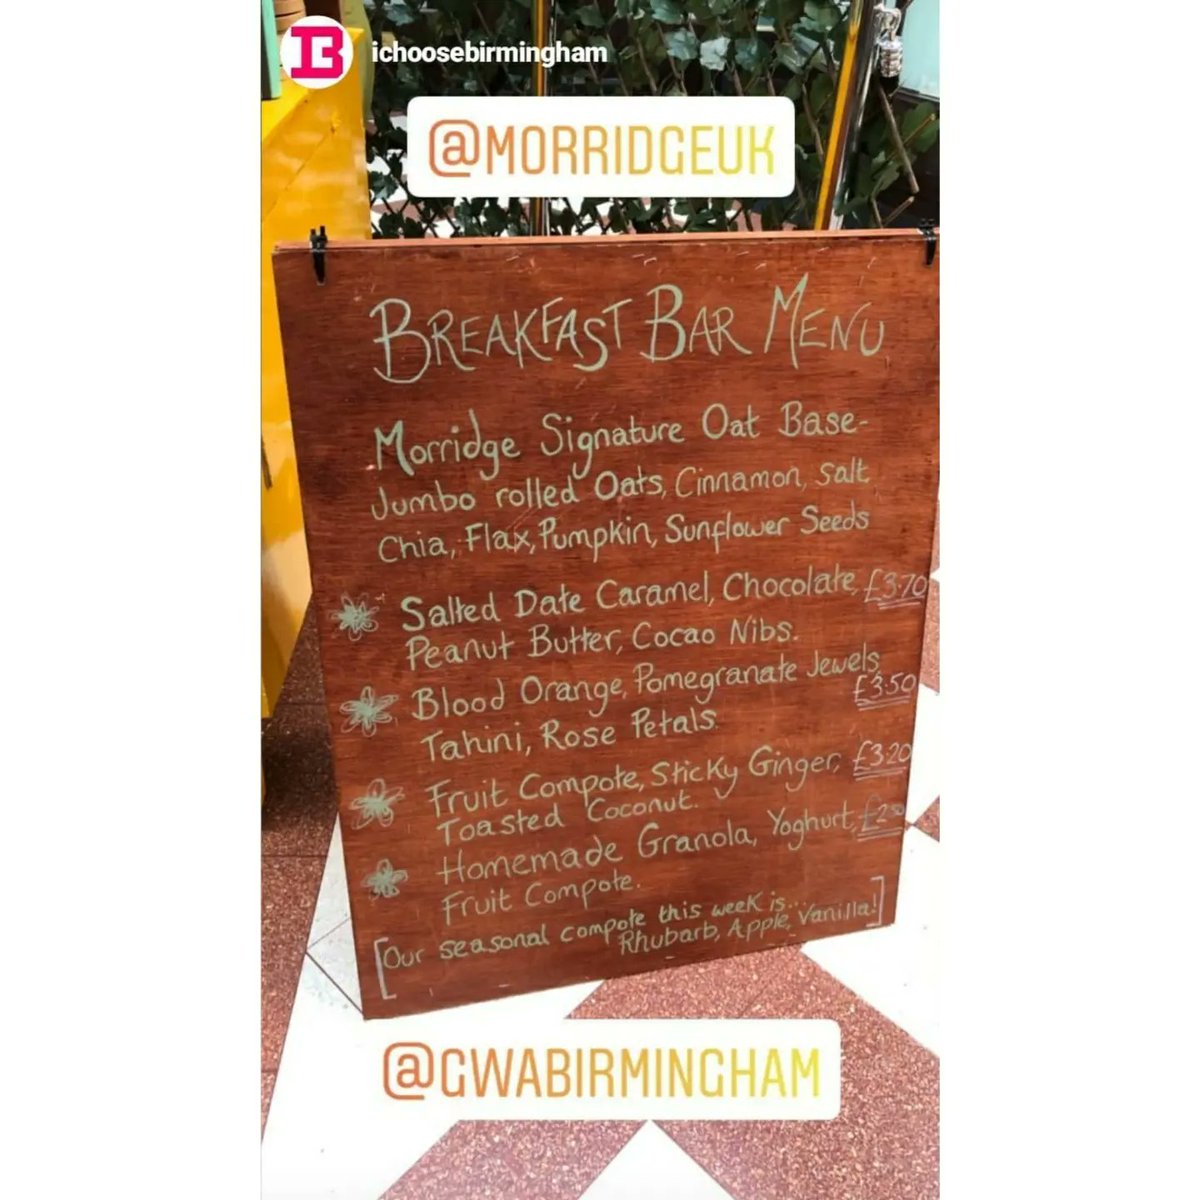 ichoosebirmingham
@MORRIDGEUK
BREAKFAST BAR MENU
Morridge Signature Oat Base-
Jumbo rolled Oats, Cinnamon, Salt,
Chia, Flax, Pumpkin, Sunflower Seeds
Salted Date Caramel, Chocolate, £3.70
Peanut Butter, Cocao Nibs.
Blood Orange, Pomegranate Jewels,
£3.50
Tahini, Rose Petals.
Fruit Compote, Sticky Ginger, £3.20
Toasted Coconut.
Homemade Granola, Yoghurt,
Fruit Compote.
[Our seasonal compote this week is...
Rhubarb, Apple, Vanilla!]
@GWABIRMINGHAM